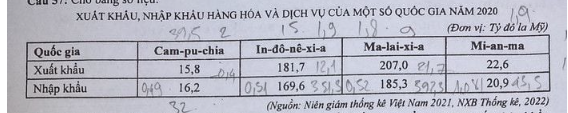 Câu 37: Cho bảng số liệu:
XUẤT KHẨU, NHẬP KHẨU HÀNG HÓA VÀ DỊCH VỤ CỦA MỘT SỐ QUỐC GIA NĂM 2020
(Đơn vị: Tỷ đô la Mỹ)
Quốc gia Cam-pu-chia In-đô-nê-xi-a Ma-lai-xi-a Mi-an-ma
Xuất khẩu 15,8 181,7 207,0 21,7 22,6
Nhập khẩu 0,49 16,2 0,51 169,6 0,52 185,3 20,9
32
(Nguồn: Niên giám thống kê Việt Nam 2021, NXB Thống kê, 2022)